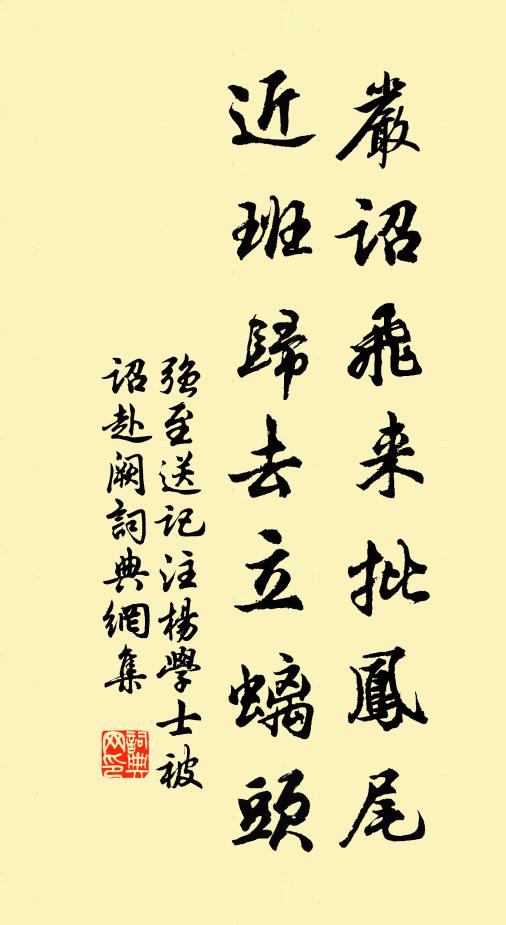 嚴詔飛来批鳳尾
近班歸去立螭頭
強至送記注楊學士被
詔赴闕詞典網集
詞典網印